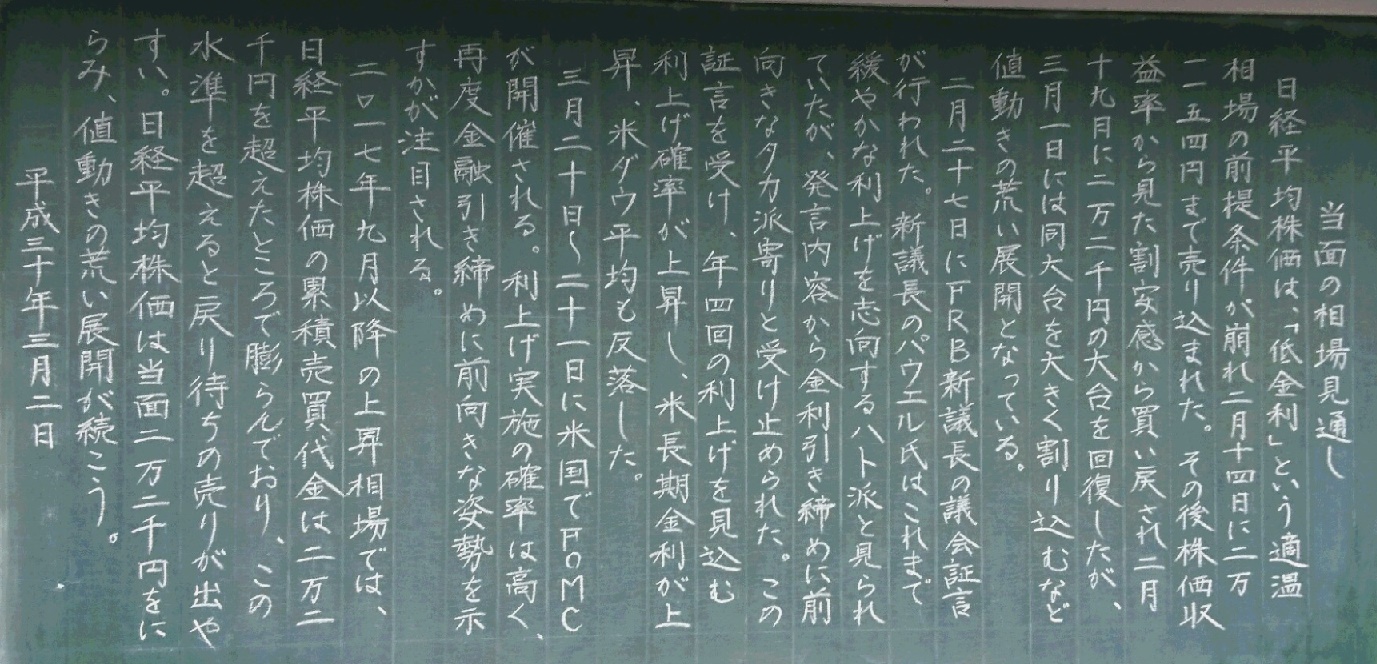 当面の相場見通し
日経平均株価は、「低金利」という適温
相場の前提条件が崩れ二月十四日に二万
一一五四円まで売り込まれた。その後株価収
益率から見た割安感から買い戻され二月
十九日に二万二千円の大台を回復したが、
三月一日には同大台を大きく割り込むなど
値動きの荒い展開となっている。
二月二十七日にFRB新議長の議会証言
が行われた。新議長のパウエル氏はこれまで
緩やかな利上げを志向するハト派と見られ
ていたが、発言内容から金利引き締めに前
向きなタカ派寄りと受け止められた。この
証言を受け、年四回の利上げを見込む
利上げ確率が上昇し、米長期金利が上
昇、米ダウ平均も反落した。
三月二十日〜二十一日に米国でFOMC
が開催される。利上げ実施の確率は高く、
再度金融引き締めに前向きな姿勢を示
すかが注目される。
二〇一七年九月以降の上昇相場では、
日経平均株価の累積売買代金は二万二
千円を超えたところで膨らんでおり、この
水準を超えると戻り待ちの売りが出や
すい。日経平均株価は当面二万二千円をに
らみ、値動きの荒い展開が続こう。
平成三十年三月二日